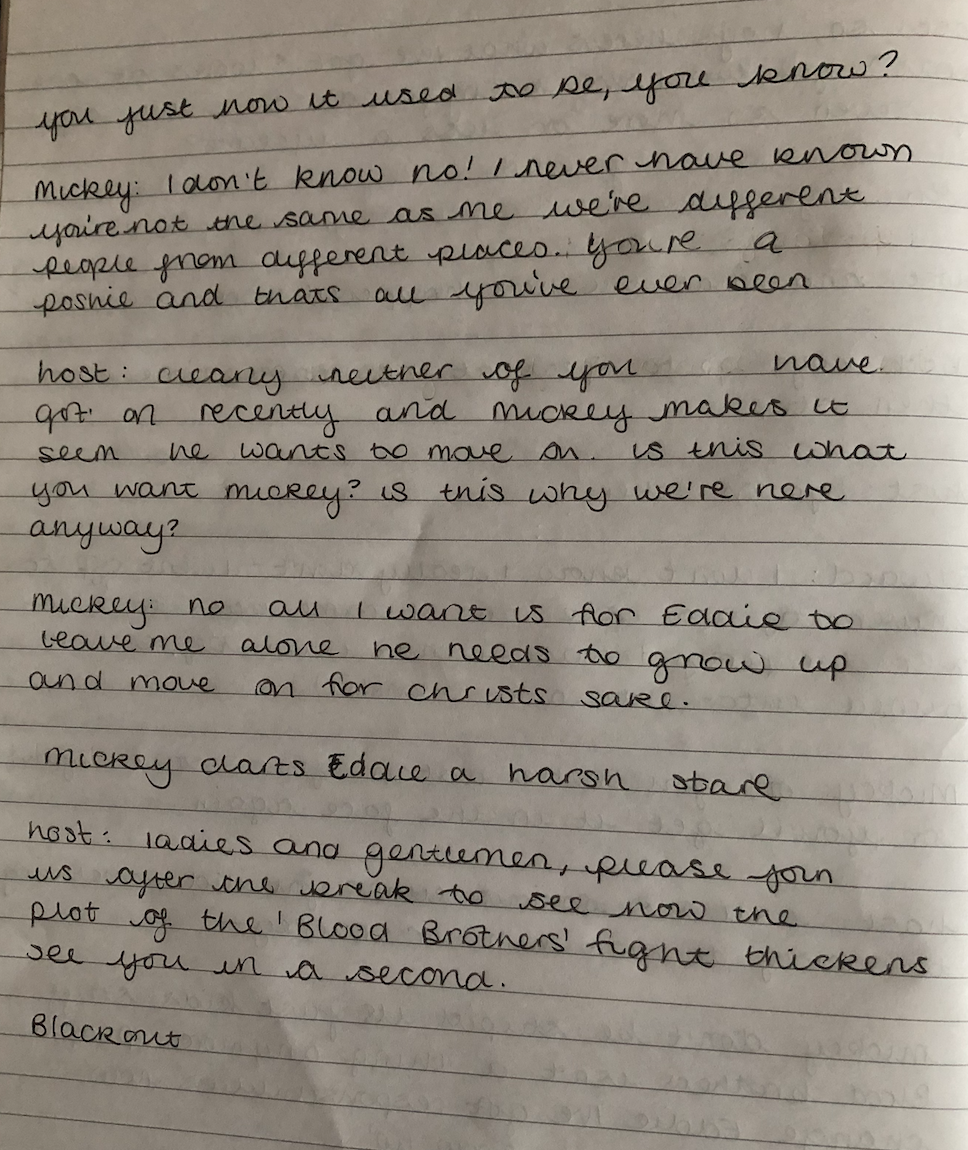 you just how it used to be, you know?
Mickey: I don't know no! I never have known
you're not the same as me we're different
people from different places. You're a
poshie and thats all you've ever been
host: clearly neither of you have
got on recently and Mickey makes it
seem he wants to move on. is this what
you want mickey? is this why we're here
anyway?
Mickey: no all I want is for Eddie to
leave me alone he needs to grow up
and move on for christs sake.
Mickey darts Eddie a harsh stare
host: ladies and gentlemen, please join
us after the break to see how the
plot of the 'Blood Brothers' fight thickens
see you in a second.
Blackout